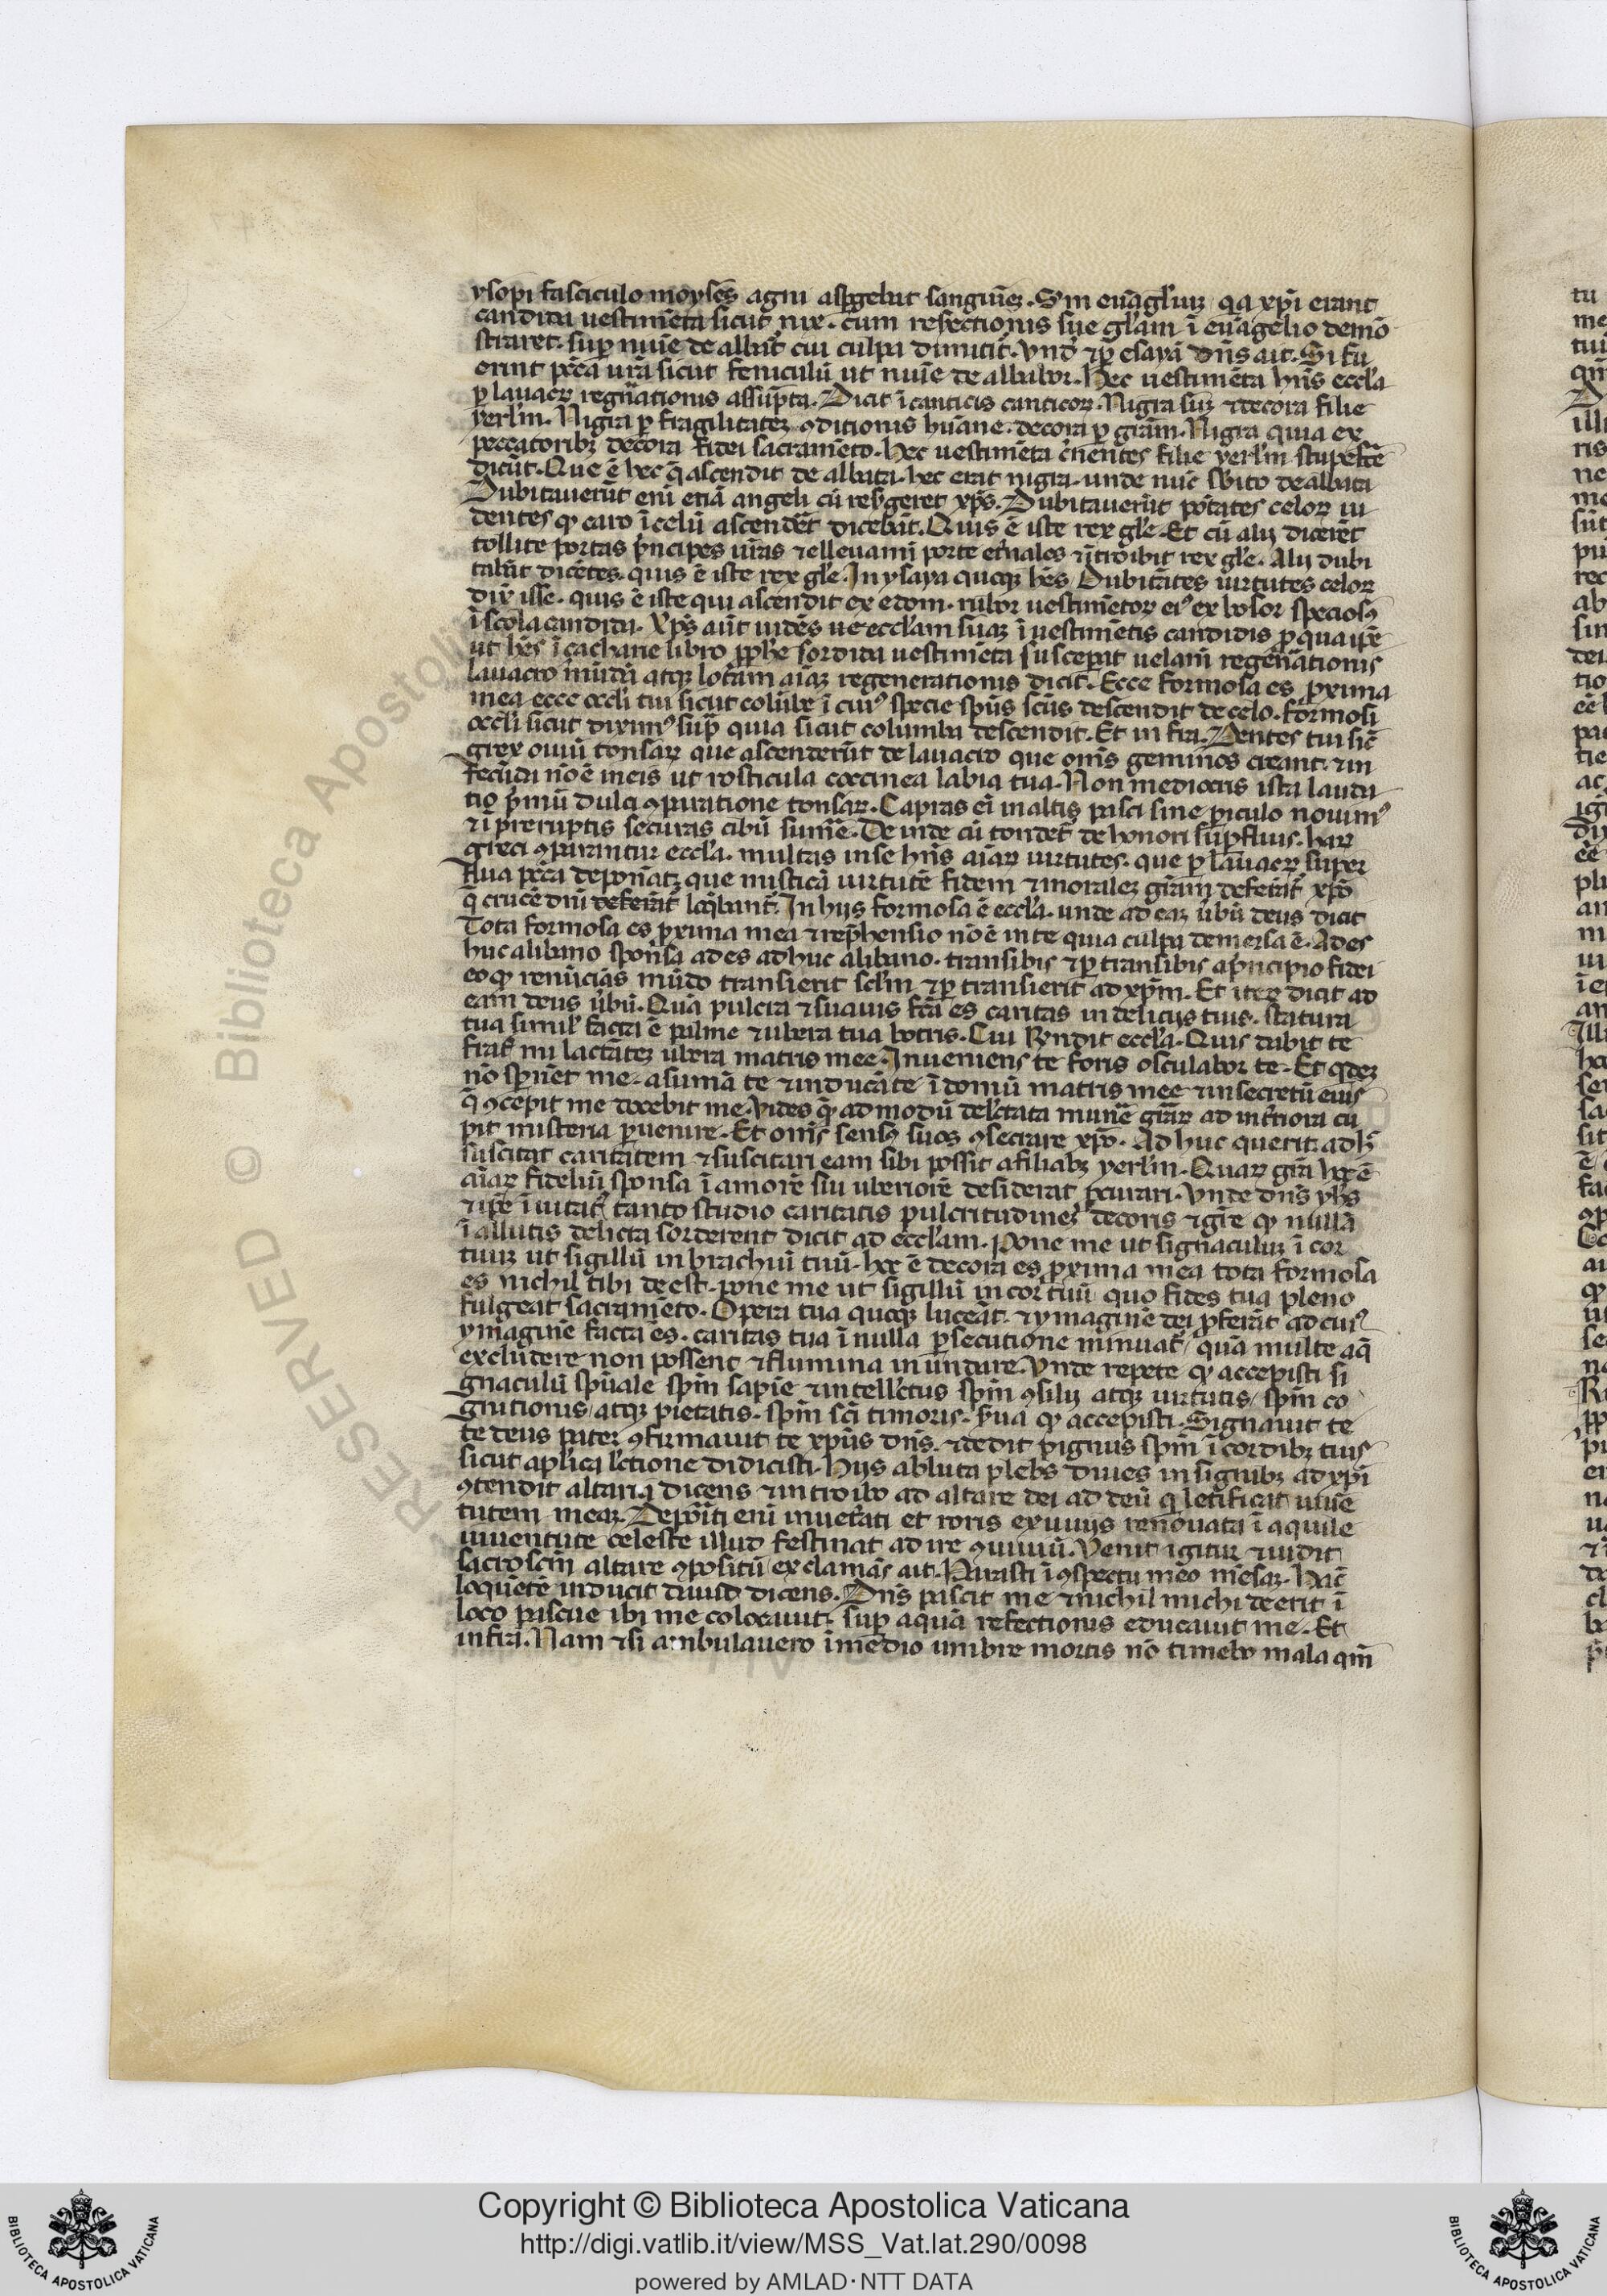 ysopi fasciculo moyses agni aspgebat sanguinez. Sm euāgl'iuz qa xpi erant
candida uestimēta sicut nix. cum resectionis sue gl'am ī euāgelio demō
straret. sup niuē de albat̄ cui culpa dimittit̄. Vnd' & p esayā dn̄s ait. Si fu
erint pc̄cā ur̄ā sicut feniculū ut niuē de albabor. Hec uestimēta hn̄s eccl'a
p lauacꝝ regn̄ationis assūpta. Dicit ī canticis canticoꝝ. Nigra suz & decora filie
yerl'm. Nigra p fragilitatez ꝯditionis humane. decora p grām. Nigra quia ex
peccatoribꝫ decora fidei sacramēto. Hec uestimēta c̄nentes filie yerl'm stupefc̄e
dicūt. Que ē hec q̄ ascendit de albata. hec erat nigra. unde nūc sbito dealbata
Dubitauerūt eni etiā angeli cū resꝰgeret xp̄s. Dubitauerūt pōtates celoꝝ ui
dentes qꝫ caro ī celū ascendēt dicebāt. Quis ē iste rex gl'e. Et cū alij dicerēt
tollite portas pncipes ur̄as & elleuamī porte etn̄ales & ītroibit rex gl'e. Alij dubi
tabāt dicētes. quis ē iste rex gl'e. In ysaya quoqꝫ hēs dubitātes uirtutes celoꝝ
dix isse. quis ē iste qui ascendit ex edom. rubor uestimētoꝝ eiꝰ ex bosor speciosꝰ
ī scola candida. Xp̄s aūt uidēs ue eccl'am suaz ī uestimētis candidis p qua ipē
ut hēs ī çacharie libro pphe sordida uestimēta susceperat uelam̄ regen̄ationis
lauacro mūdā atqꝫ lotam aīaz regenerationis dicit. Ecce formosa es pxima
mea ecce occl'i tui sicut colūbe ī cuiꝰ specie spūs scūs descendit de celo. formosi
occl'i sicut diximꝰ supͣ quia sicut columba descendit. Et in fra. Dentes tui sic̄
grex ouiū tonsaꝝ que ascenderūt de lauacro que om̄s geminos creant. & in
fecūda nō ē in eis ut rosticula coccinea labia tua. Non mediocris ista lauda
tio pmū dulci ꝯparatione tonsaꝝ. Capras ei in altis pasci sine piculo nouimꝰ
& ī preruptis securas cibū sumē. De inde cū tondet̄ de honori supfluis. haꝝ
greci ꝯparantur eccl'a. multas in se hn̄s aīaꝝ uirtutes. que p lauacꝝ super
flua pcc̄a deponātꝫ que misticā uirtutē fidem & moralez grām deferāt xpō
q̄ crucē dn̄i deferāt loqbant̄. In hijs formosa ē eccl'a. unde ad eaz ūbū deus dicit
Tota formosa es pxima mea & repͥhensio nō ē in te quia culpa demersa ē. Ades
huc alibano sponsa ades adhuc alibano. transibis & p transibis apͥncipio fidei
eo qꝫ renūciās mūdo transierit scl'm & p transierit ad xpm. Et iteꝝ dicit ad
eam deus ūbū. Quā pulcra & suauis fcā es caritas in delicijs tuis. statura
tua simil' facta ē palme & ubera tua botris. Cui Rn̄dit eccl'a. Quis dabit te
frat̄ mi lactātez ubera matris mee. Inueniens te foris osculabor te. Et qͥdez
nō spn̄et me. asumā te & inducā te ī domū matris mee & in secretū eius
q̄ ꝯcepit me docebit me. Vides qͣ ad modū del'ctata munē graꝝ ad intͥiora cu
pit misteria puenire. Et om̄s sensꝰ suos ꝯsecrare xpō. Ad huc querit. adhͨ
suscitat caritatem & suscitari eam sibi possit a filiabꝫ yerl'm. Quaꝝ grā hoc ē
aīaꝝ fideliū sponsa ī amorē sui uberiorē desiderat pcurari. Vnde dn̄s yhs
& ipē īuitatꝰ tanto studio caritatis pulcritudinez decoris & grē qꝫ nullā
ī allutis delicta sorderent dicit ad eccl'am. Pone me ut signaculuz ī cor
tuuz ut sigillū in brachiū tuū. hoc ē decora es pxima mea tota formosa
es nichil tibi deest. pone me ut sigillū in cor tuū quo fides tua pleno
fulgeat sacramēto. Opera tua quoqꝫ luceāt. & ymaginē dei pferāt ad cuiꝰ
ymaginē facta es. caritas tua ī nulla psecutione minuat̄ quā multe aq̄
excludere non possent & flumina inundare. Vnde repete qꝫ accepisti si
gnaculū spūale spm̄ sapiē & intell'ctus spm̄ ꝯsilij atqꝫ uirtutis spm̄ co
gnitionis atqꝫ pietatis. spm̄ scī timoris. sua qꝫ accepisti. Signauit te
te deus pater ꝯfirmauit te xpūs dn̄s. & dedit pignus spm̄ ī cordibꝫ tuis
sicut apl'ica l'ctione didicisti. Hijs abluta plebs diues insignibꝫ ad xpi
ꝯtendit altaria dicens & introibo ad altare dei ad deū q letificat iuuē
tutem meaz. Depōiti eni inuetāti et roris exuuijs renouata ī aquile
iuuentute celeste illud festinat adire ꝯuiuiū. Venit igitur & uidit
sacroscm̄ altare ꝯpositū exclamās ait. Parasti ī ꝯspectu meo mēsaꝫ. Hāc
loquētē inducit dauid dicens. Dn̄s pascit me & nichil michi deerit ī
loco pascue ibi me colocauit. sup aquā refectionis educauit me. Et
infra. Nam & si ambulauero ī medio umbre mortis nō timebo mala qm̄
Copyright © Biblioteca Apostolica Vaticana
http://digi.vatlib.it/view/MSS_Vat.lat.290/0098
powered by AMLAD·NTT DATA